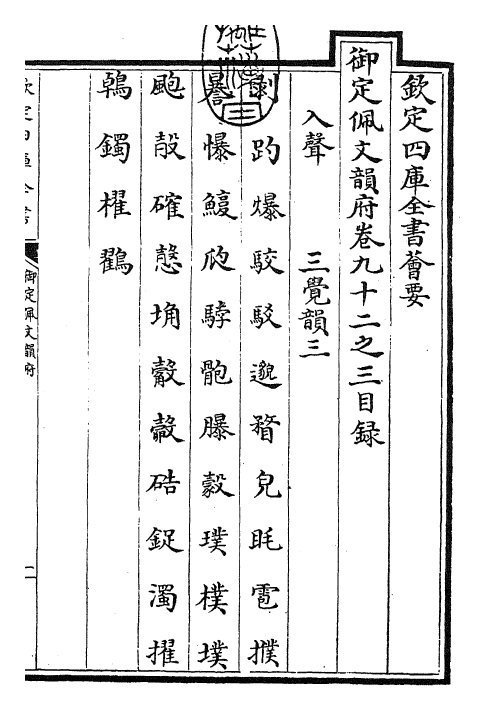 欽定四庫全書薈要
御定佩文韻府卷九十二之三目録
入聲 三覺韻三
剝 趵 爆 駮 駁 邈 瞀 皃 眊 雹 撲
懪 鰒 瓝 䮀 骲 曝 縠 璞 樸 墣
颮 㱿 確 愨 埆 觳 㲉 硞 鋜 濁 擢
鵫 鐲 櫂 鸐
御定佩文韻府